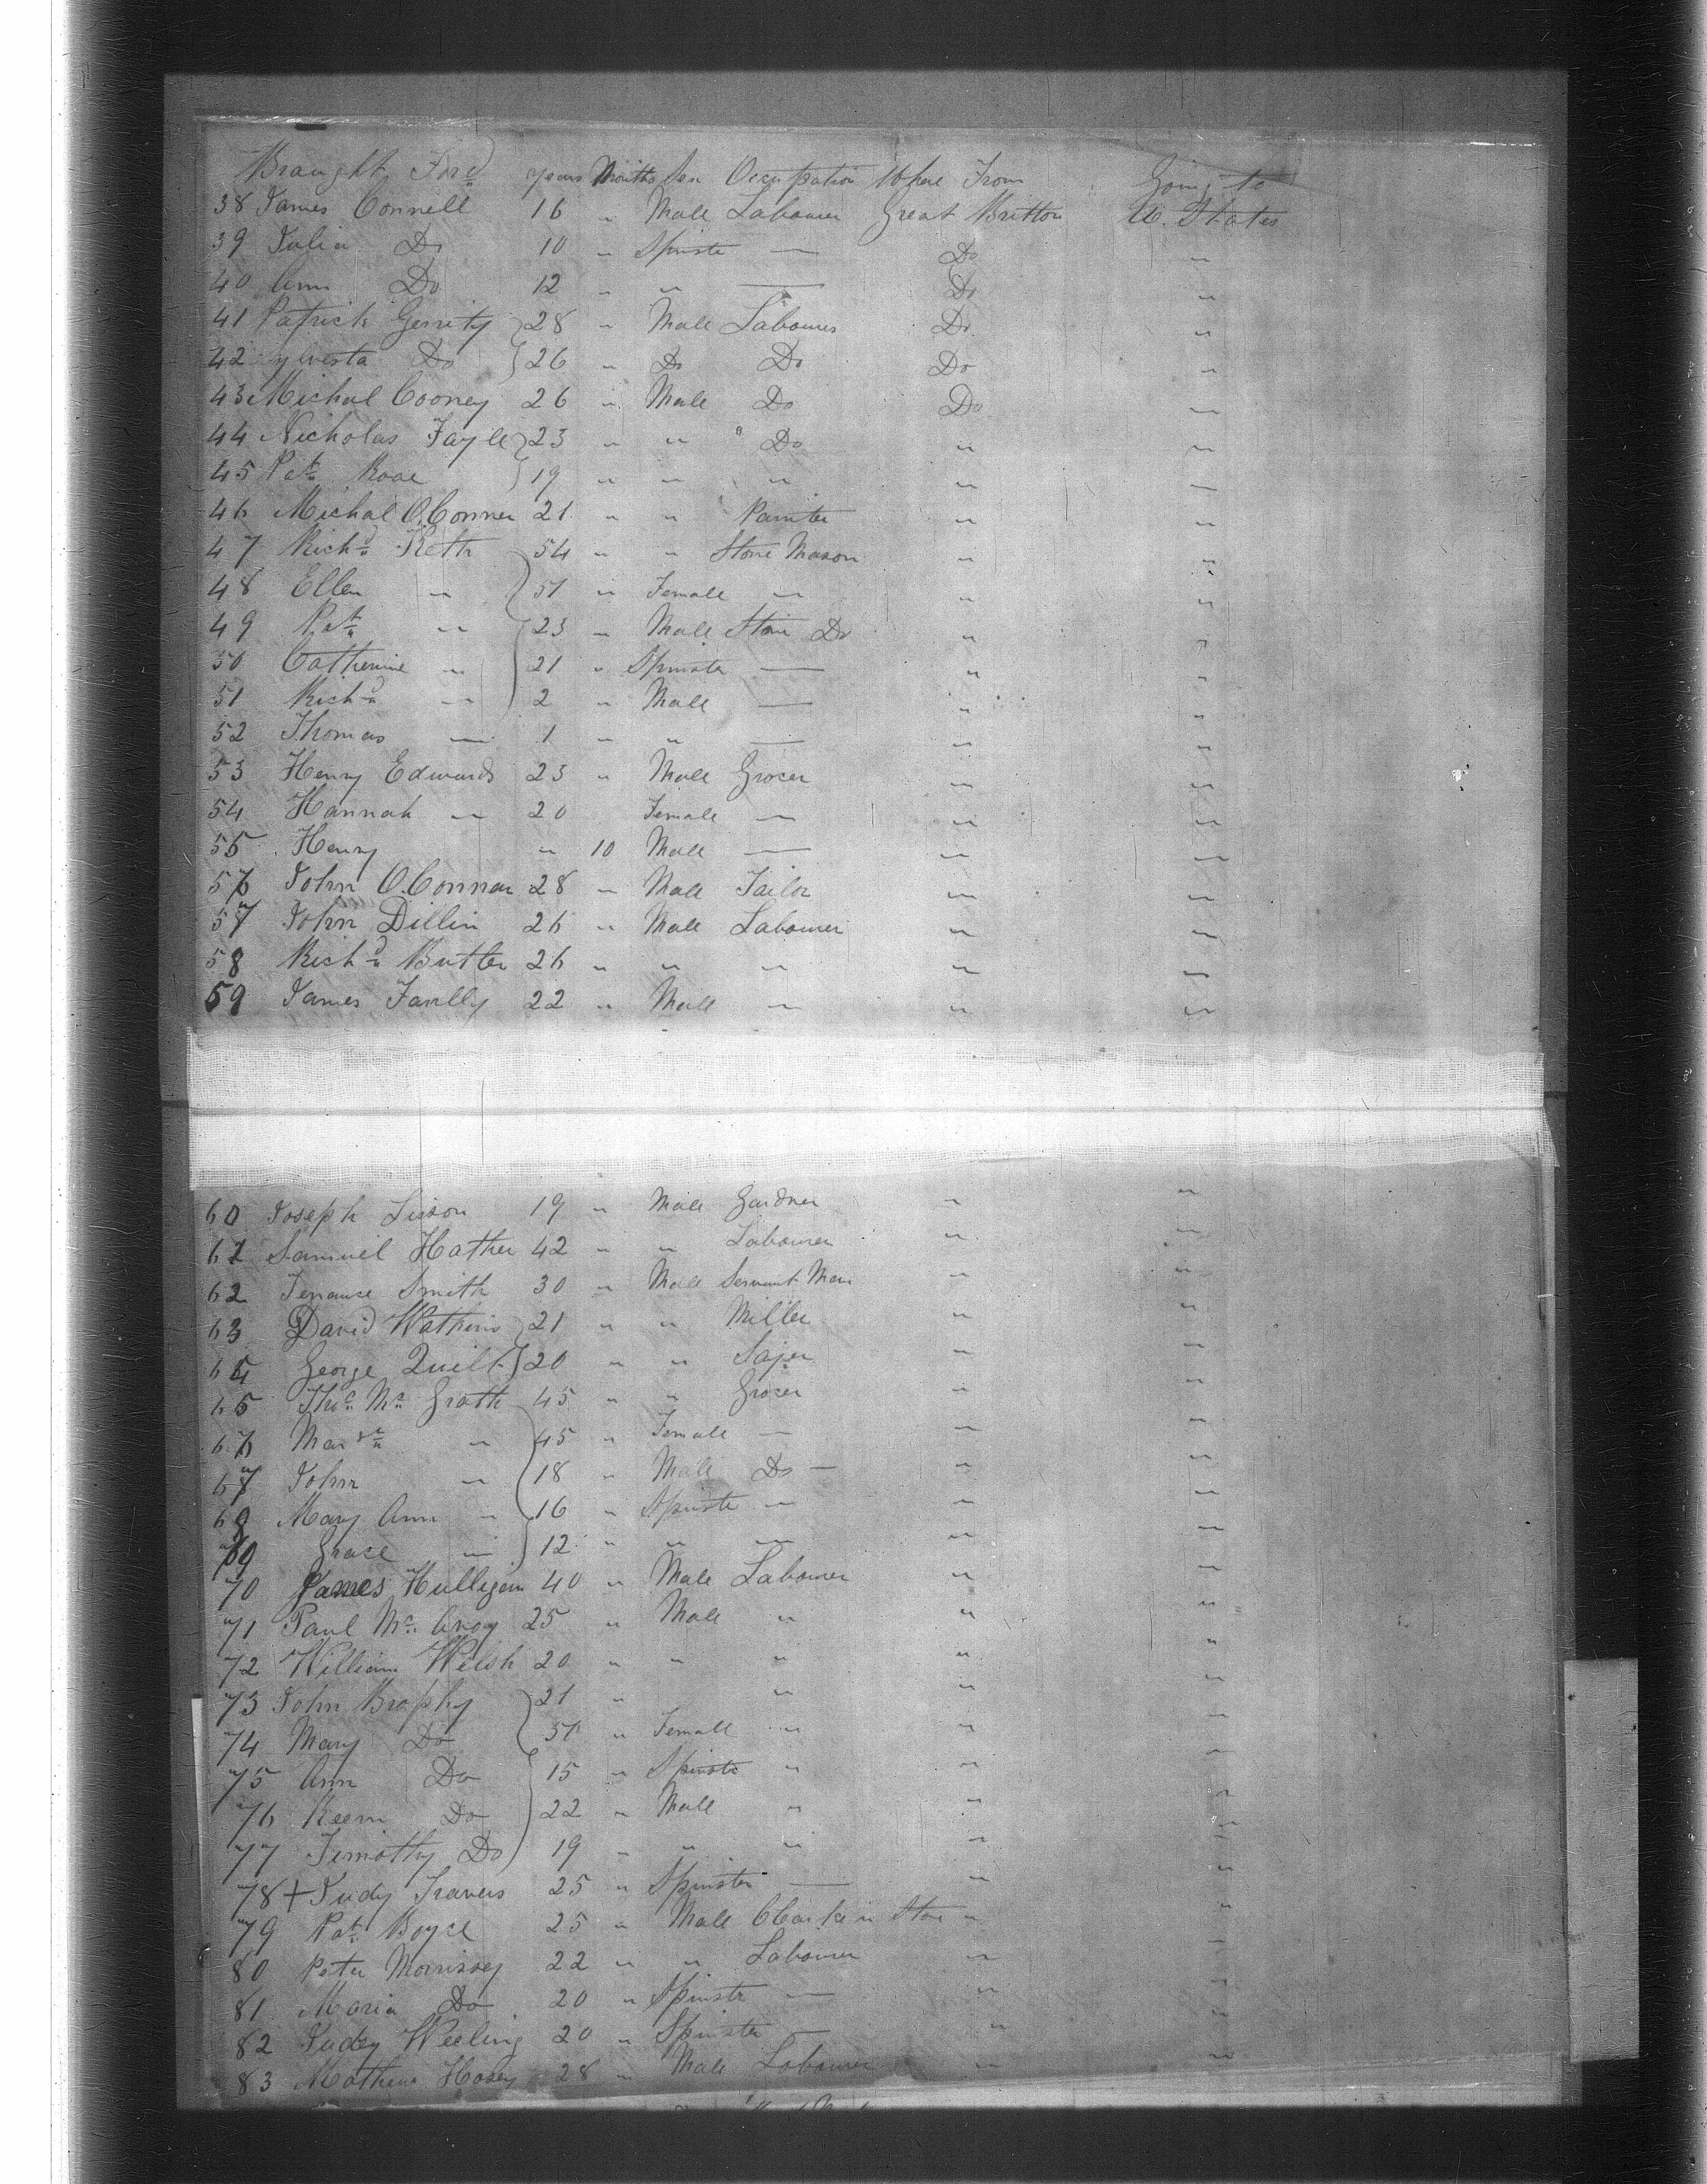 Braught Ford years Months Sex Occupation Where From Going to
38 James Connell 16 " Male Labourer Great Britton U. States
39 Julia Do 10 " Spinste — Do "
40 Ann Do 12 " " — Do "
41 Patrick Gerrity 28 " Male Labourer Do "
42 Sylvesta Do 26 " Do Do Do "
43 Michal Cooney 26 " Male Do Do "
44 Nicholas Fayle 23 " " Do " "
45 Patk 19 " " " " "
46 Michal O.Conner 21 " " Painter " "
47 Richd Keth 54 " " Stone Mason " "
48 Ellen " 51 " Female " " "
49 Patk " 23 " Male Stone Do " "
50 Catherine " 21 " Spinste — " "
51 Richd " 2 " Male — " "
52 Thomas — 1 " " — " "
53 Henry Edwards 23 " Male Grocer " "
54 Hannah " 20 Female " " "
55 Henry " 10 Male — " "
56 John O.Connor 28 " Male Tailor " "
57 John Dillin 26 " Male Labourer " "
58 Richd Butler 26 " " " " "
59 James 22 " Male " " "
60 Joseph Sisson 19 " Male Gardner " "
61 Samuel Hather 42 " " Labourer " "
62 Terance Smith 30 " Male Servant Man " "
63 David Watkins 21 " " Miller " "
64 George Quilt 20 " " " "
65 Thos Mc Grath 45 " " Grocer " "
66 " 45 " Female — " "
67 John " 18 " Male Do — " "
68 Mary Ann " 16 " Spinste " " "
69 Grace " 12 " " " " "
70 James Hulligan 40 " Male Labourer " "
71 Paul Mc 25 " Male " " "
72 William Welsh 20 " " " " "
73 John Brophy 21 " " " "
74 Mary Do 51 " Female " " "
75 Ann Do 15 " Spinste " " "
76 Do 22 " Male " " "
77 Timothy Do 19 " " " " "
78 + Judy Travers 25 " Spinster — " "
79 Pat Boyce 25 " Male Clarke in Store " "
80 Peter Morrissey 22 " " Labourer " "
81 Maria Do 20 " Spinste — " "
82 Judey Weeling 20 " Spinster — " "
83 Mathew Hosey 28 " Male Labourer " "